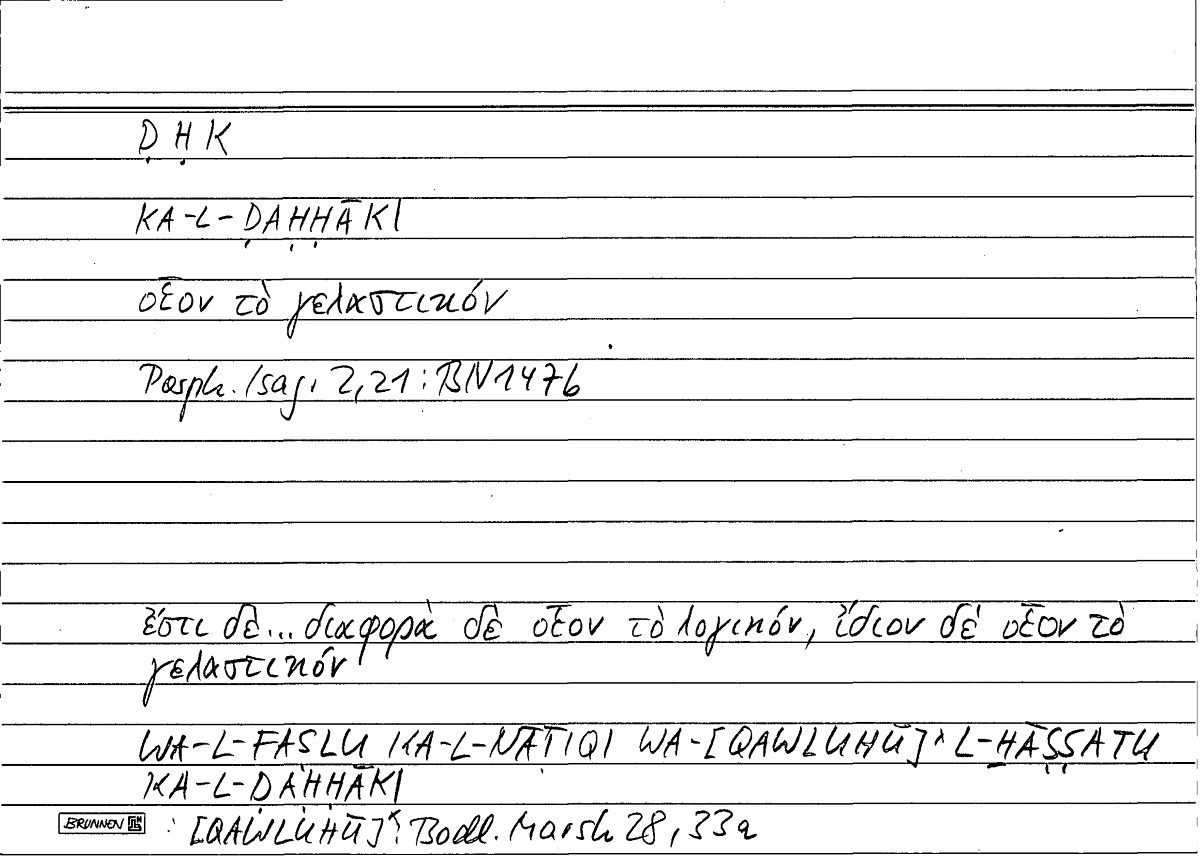 Ḍ Ḥ K
KA-L-ḌAḤḤĀKI
οἷον τὸ γελαστικόν
Porph. Isag. 2,21: BN 147b
ἔστι δὲ... διαφορὰ δὲ οἷον τὸ λογικόν, ἴδιον δὲ οἷον τὸ
γελαστικόν
WA-L-FAṢLU KA-L-NĀṬIQI WA-[QAWLUHŪ]ˣ L-ḪĀṢṢATU
KA-L-ḌAḤḤĀKI
BRUNNEN : [QAWLUHŪ]ˣ: Bodl. Marsh 28, 33a